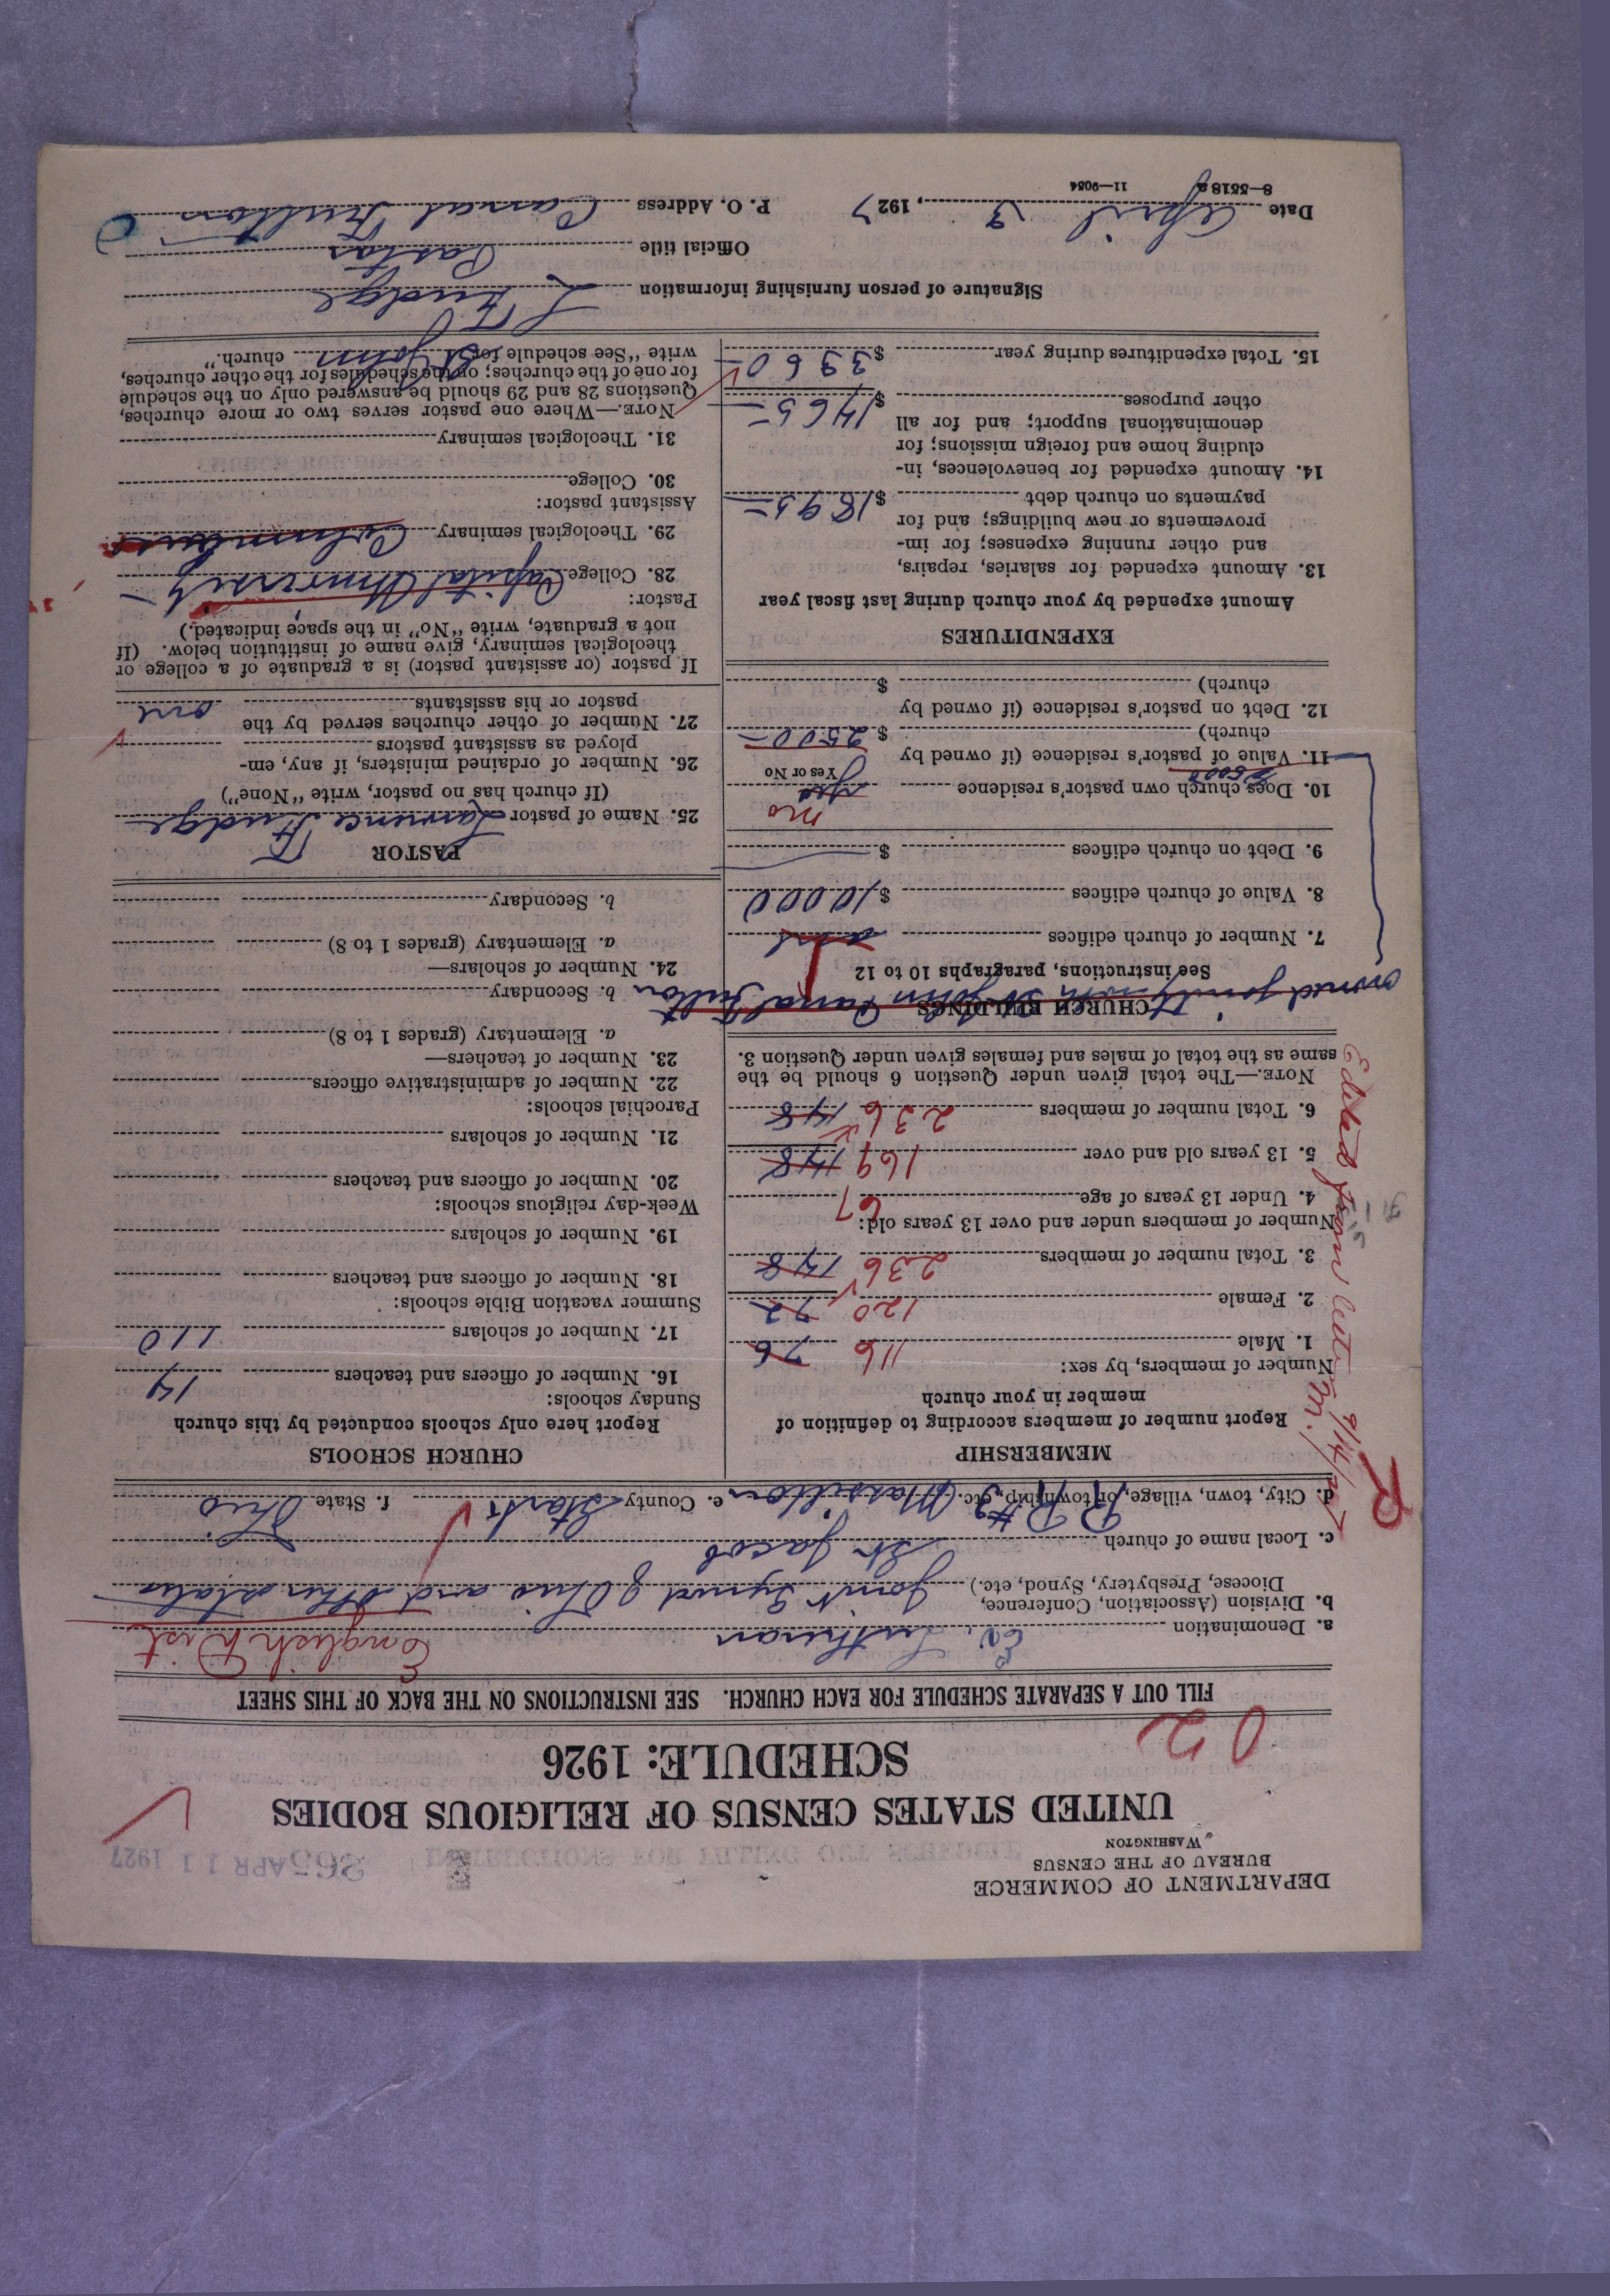 DEPARTMENT OF COMMERCE
BUREAU OF THE CENSUS
WASHINGTON
265 APR 11 1927
UNITED STATES CENSUS OF RELIGIOUS BODIES
SCHEDULE: 1926
02
FILL OUT A SEPARATE SCHEDULE FOR EACH CHURCH. SEE INSTRUCTIONS ON THE BACK OF THIS SHEET
a. Denomination Ev. Lutheran English Dist
b. Division (Association, Conference, Diocese, Presbytery, Synod, etc.) Joint Synod of Ohio and Other States
c. Local name of church St. Jacob
d. City, town, village, or township, etc. R R #3 Massillon e. County Stark f. State Ohio
MEMBERSHIP
Report number of members according to definition of
member in your church
Number of members, by sex:
1. Male 116 76
2. Female 120 72
3. Total number of members 236 148
Number of members under and over 13 years old:
4. Under 13 years of age 67
5. 13 years old and over 169 148
6. Total number of members 236 148
NOTE.—The total given under Question 6 should be the
same as the total of males and females given under Question 3.
Edited from let 9/14/27
M.
R
CHURCH BUILDINGS
owned jointly with St John Canal Fulton
See instructions, paragraphs 10 to 12
7. Number of church edifices
8. Value of church edifices $10000
9. Debt on church edifices $
10. Does church own pastor's residence no yes
Yes or No
5000
11. Value of pastor's residence (if owned by
church) $ 2500—
12. Debt on pastor's residence (if owned by
church) $
EXPENDITURES
Amount expended by your church during last fiscal year
13. Amount expended for salaries, repairs,
and other running expenses; for im-
provements or new buildings; and for
payments on church debt $1895—
14. Amount expended for benevolences, in-
cluding home and foreign missions; for
denominational support; and for all
other purposes $1465—
15. Total expenditures during year $3360
CHURCH SCHOOLS
Report here only schools conducted by this church
Sunday schools:
16. Number of officers and teachers 14
17. Number of scholars 110
Summer vacation Bible schools:
18. Number of officers and teachers
19. Number of scholars
Week-day religious schools:
20. Number of officers and teachers
21. Number of scholars
Parochial schools:
22. Number of administrative officers
23. Number of teachers—
a. Elementary (grades 1 to 8)
b. Secondary
24. Number of scholars—
a. Elementary (grades 1 to 8)
b. Secondary
PASTOR
25. Name of pastor Lawrence Fudge
(If church has no pastor, write "None")
26. Number of ordained ministers, if any, em-
ployed as assistant pastors
27. Number of other churches served by the
pastor or his assistants one
If pastor (or assistant pastor) is a graduate of a college or
theological seminary, give name of institution below. (If
not a graduate, write "No" in the space indicated.)
Pastor:
28. College Capital University
29. Theological seminary Columbus
Assistant pastor:
30. College
31. Theological seminary
NOTE.—Where one pastor serves two or more churches,
Questions 28 and 29 should be answered only on the schedule
for one of the churches; on the schedules for the other churches,
write "See schedule for St John church."
Signature of person furnishing information L Fudge
Official title Pastor
Date April 9, 1927 P. O. Address Canal Fulton O
8—5518 a 11—9054